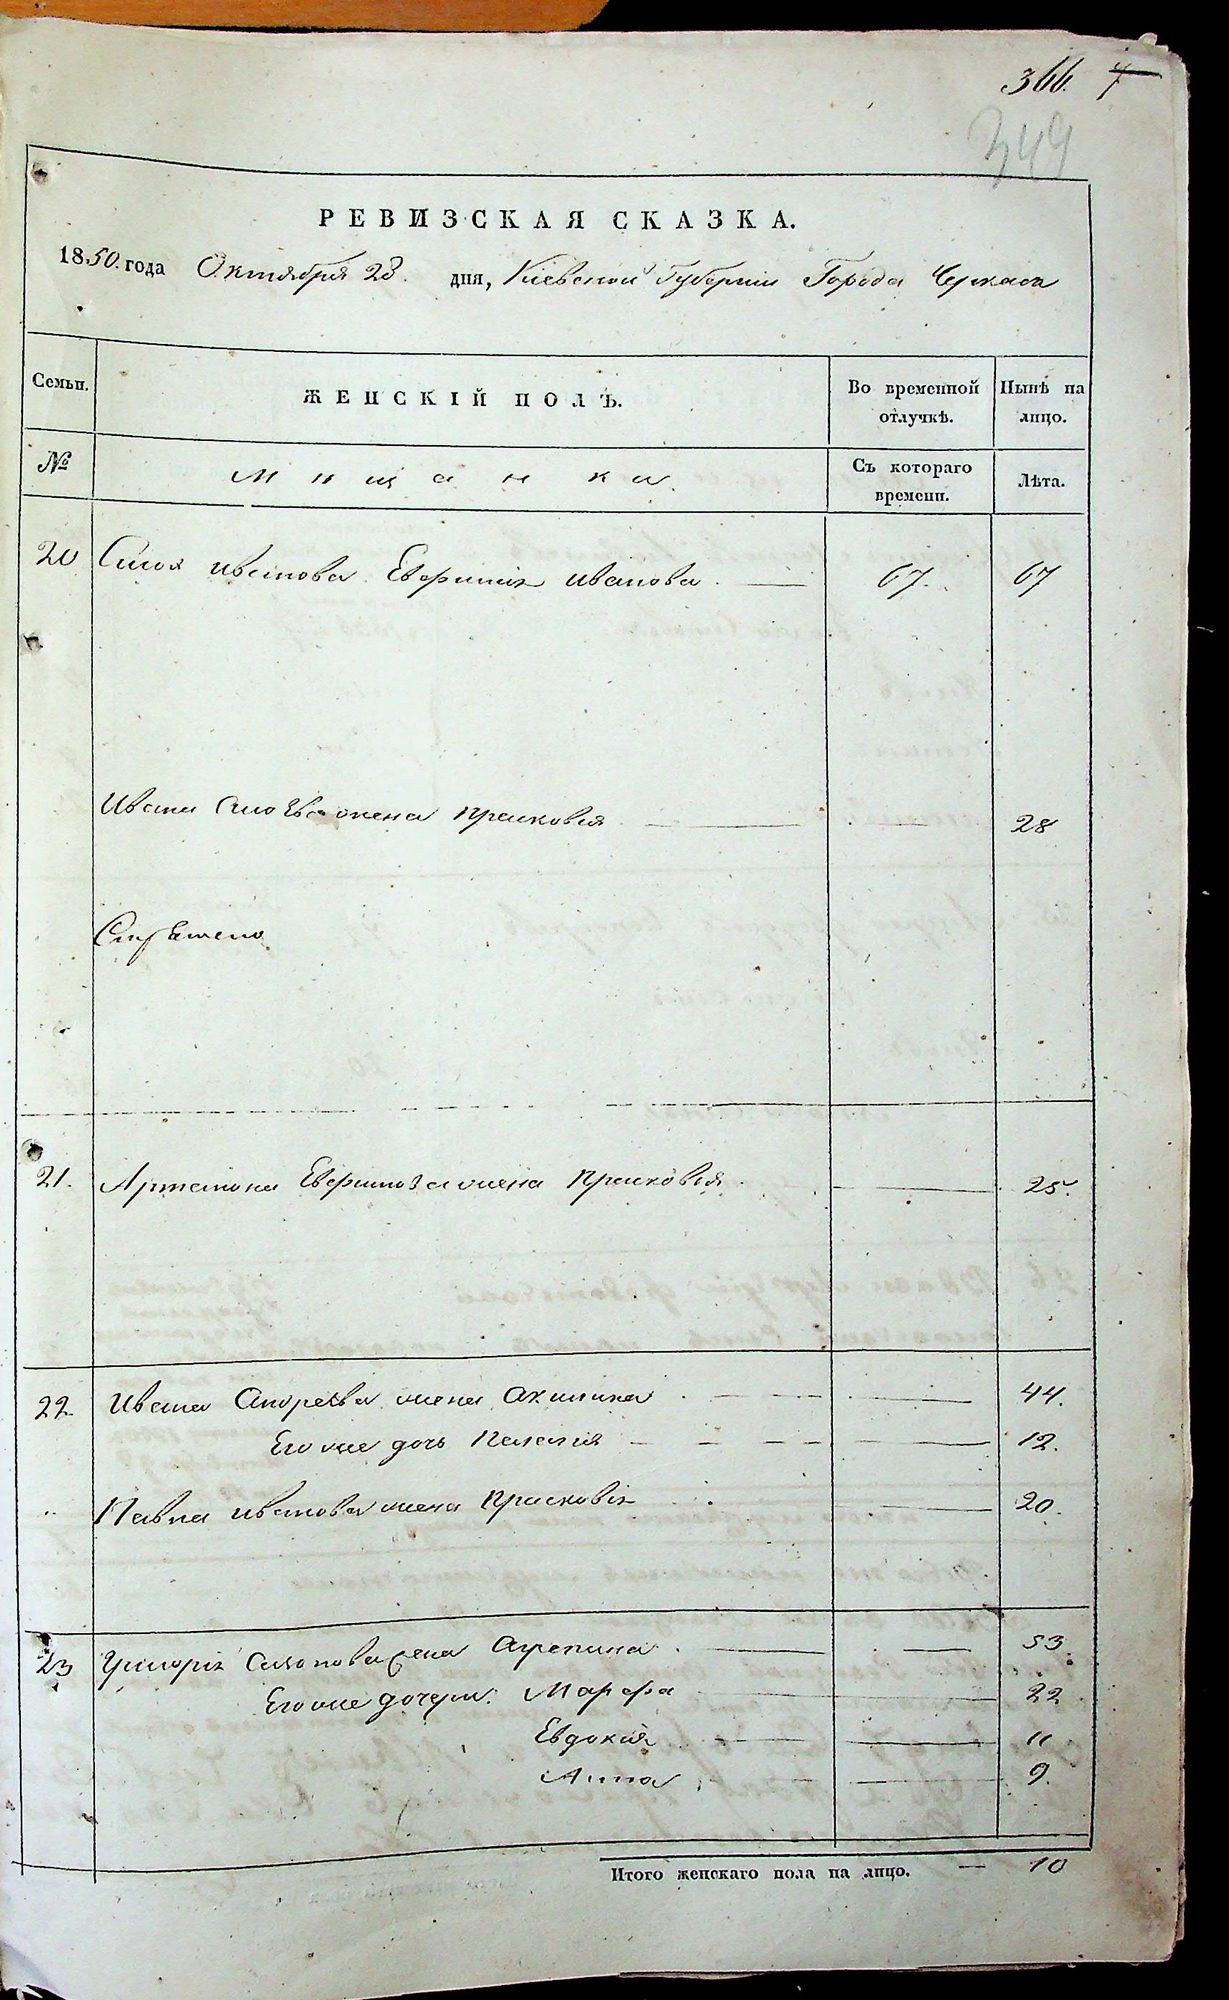 366. 7
344
РЕВИЗСКАЯ СКАЗКА.
1850. года Октября 23. дня, Кіевской Губерніи Города Черкасъ
Семьи.
ЖЕНСКІЙ ПОЛЪ.
Во временной отлучкѣ.
Нынѣ на лицо.
№
Мѣщанка.
Съ котораго времени.
Лѣта.
20 Иванова Иванова. 67. 67
Ивана жена Прасковія 28
21. Артамона жена Прасковія 25.
22. Ивана Андреева жена Акилина 44.
Его же дочь Пелагія 12.
" Павла Иванова жена Прасковія 20.
23 Григорія жена Агрепина 53.
Его же дочери: Марфа 22
Евдокія 11
Анна 9.
Итого женскаго пола на лицо. — 10